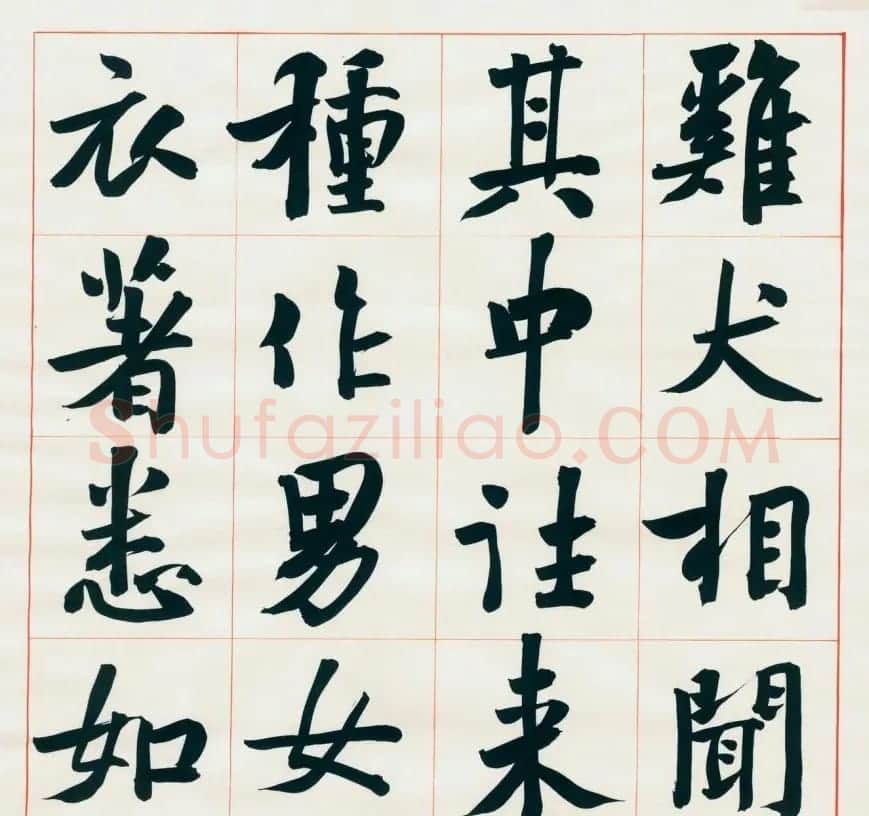 雞犬相聞
其中往来
種作男女
衣著悉如
Shufaziliao.COM